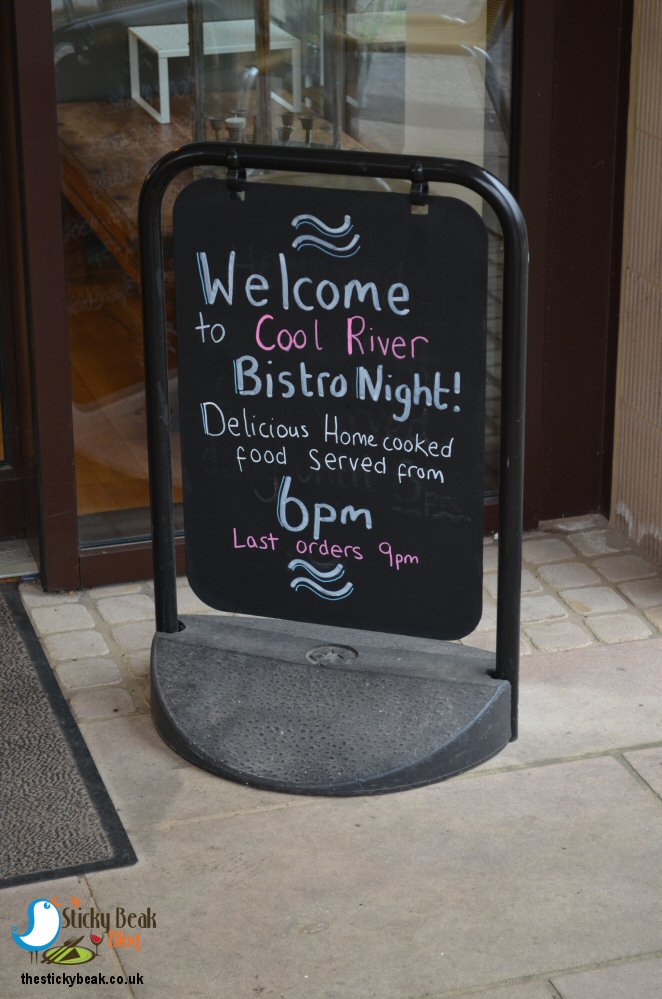 Welcome
to Cool River
Bistro Night!
Delicious Home cooked
food served from
6pm
Last orders 9pm
The Sticky Beak
Blog
thestickybeak.co.uk